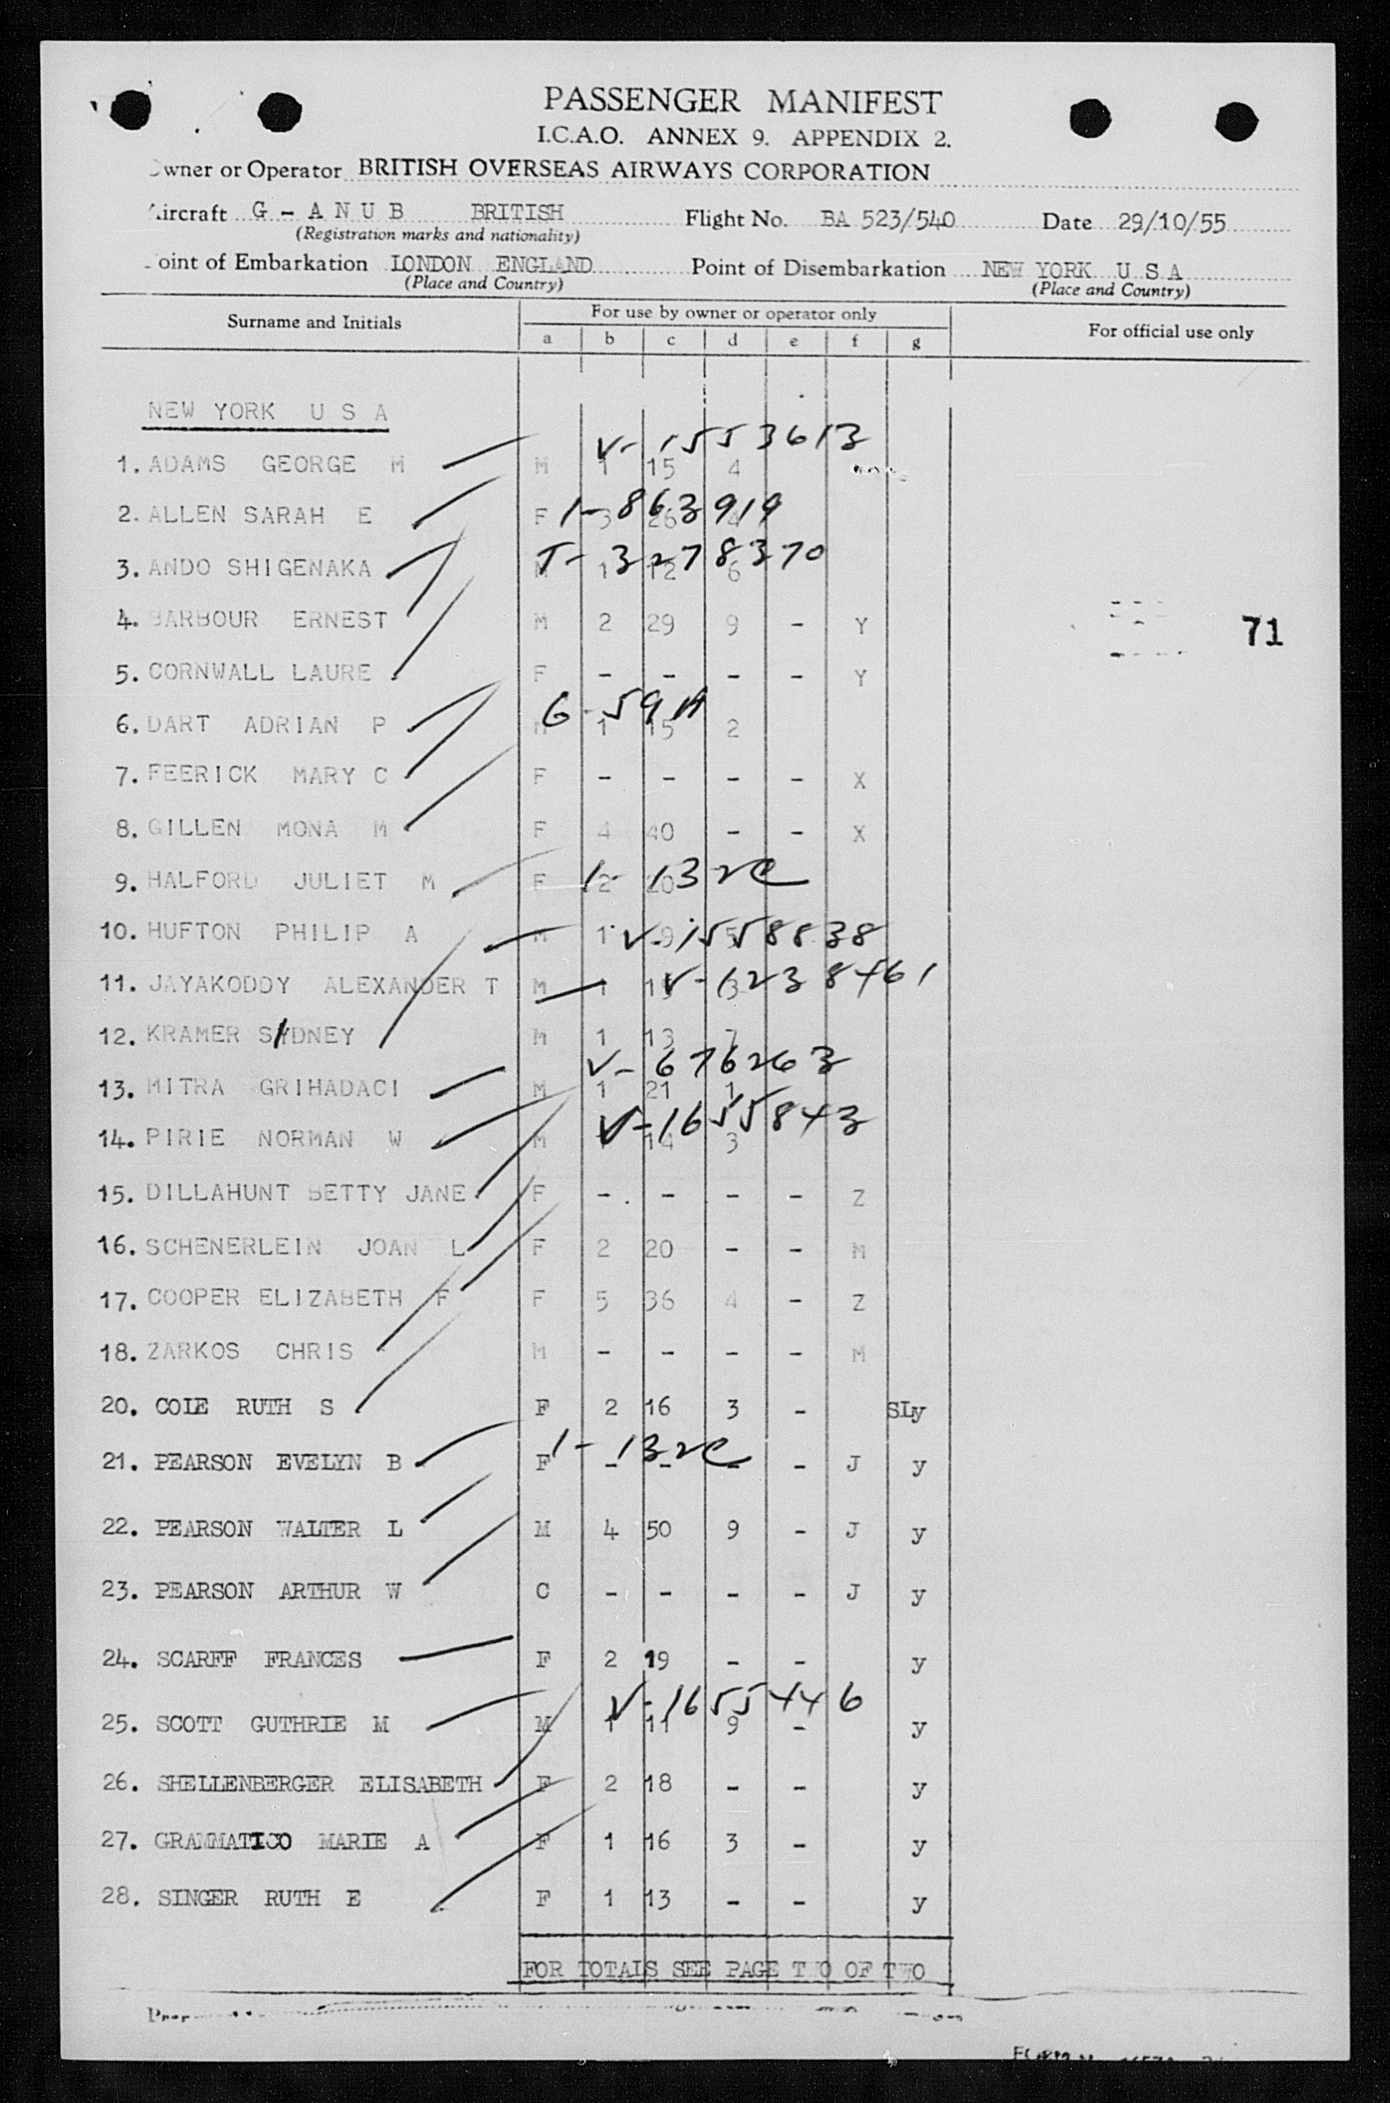 PASSENGER MANIFEST
I.C.A.O. ANNEX 9. APPENDIX 2.
wner or Operator BRITISH OVERSEAS AIRWAYS CORPORATION
ircraft G - A N U B BRITISH Flight No. BA 523/540 Date 29/10/55
(Registration marks and nationality)
oint of Embarkation LONDON ENGLAND Point of Disembarkation NEW YORK U S A
(Place and Country) (Place and Country)
Surname and Initials For use by owner or operator only For official use only
a b c d e f g
NEW YORK U S A
V-1553613
1. ADAMS GEORGE M M 1 15 4
1-863919
2. ALLEN SARAH E F 3 26 4
T-3278370
3. ANDO SHIGENAKA M 1 12 6
4. BARBOUR ERNEST M 2 29 9 - Y
71
5. CORNWALL LAURE F - - - - Y
6-59A
6. DART ADRIAN P M 1 15 2
7. FEERICK MARY C F - - - - X
8. GILLEN MONA M F 4 40 - - X
1-132C
9. HALFORD JULIET M F 2 20
V-1558838
10. HUFTON PHILIP A M 1 9 5
V-1238461
11. JAYAKODDY ALEXANDER T M 1 15 3
12. KRAMER SYDNEY M 1 13 7
V-676263
13. MITRA GRIHADACI M 1 21 1
V-1655843
14. PIRIE NORMAN W M 1 14 3
15. DILLAHUNT BETTY JANE F - - - - Z
16. SCHENERLEIN JOAN L F 2 20 - - M
17. COOPER ELIZABETH F F 5 36 4 - Z
18. ZARKOS CHRIS M - - - - M
20. COLE RUTH S F 2 16 3 - SLy
1-132C
21. PEARSON EVELYN B F - - - - J y
22. PEARSON WALTER L M 4 50 9 - J y
23. PEARSON ARTHUR W C - - - - J y
24. SCARFF FRANCES F 2 19 - - y
V-1655446
25. SCOTT GUTHRIE M M 1 11 9 - y
26. SHELLENBERGER ELISABETH F 2 18 - - y
27. GRAMMATICO MARIE A F 1 16 3 - y
28. SINGER RUTH E F 1 13 - - y
FOR TOTALS SEE PAGE TWO OF TWO